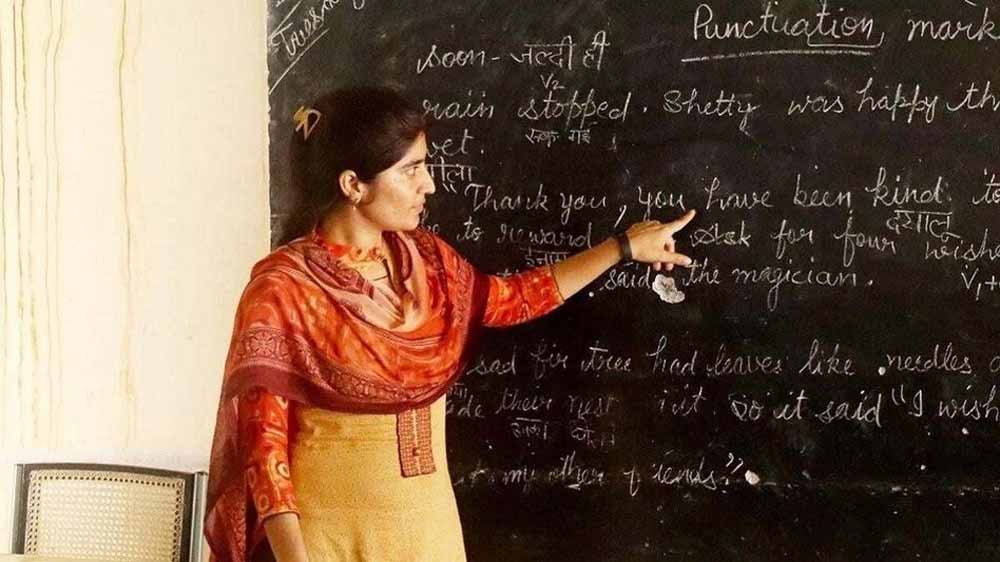 Punctuation mark
soon - जल्दी ही
V2
rain stopped. Shetty was happy th
रूक गई
wet.
गीला
"Thank you, you have been kind to
दयालू
to reward ask for four wishe
ईनाम
said the magician. V1+
sad fir tree had leaves like needles
their nest in it. So it said "I wish
उनका
my other friends?"